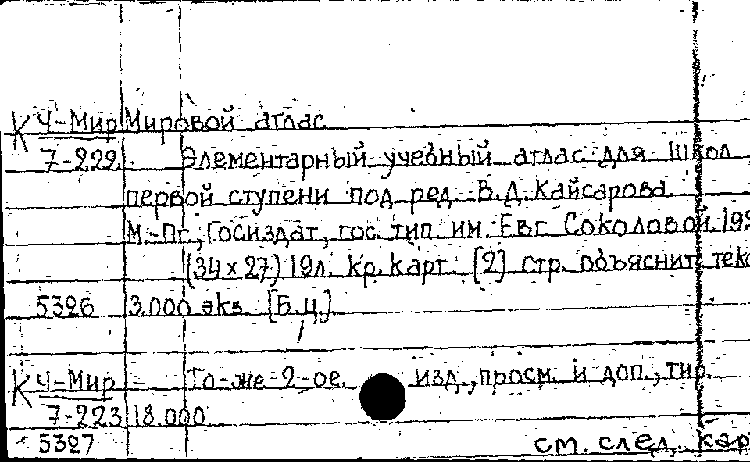 К Ч-Мир Мировой атлас
7-222. Элементарный учебный атлас для школ
первой ступени под ред. В.Д. Кайсарова
М.-Пг., Госиздат, гос. тип. им. Евг. Соколовой, 192
(34х27) 19л. кр. карт. [2] стр. объяснит. тек
5326 3.000 экз. [Б.ц.]
К Ч-Мир То-же 2-ое. изд., просм. и доп., тир.
7-223 18.000
5327 см. след. кар